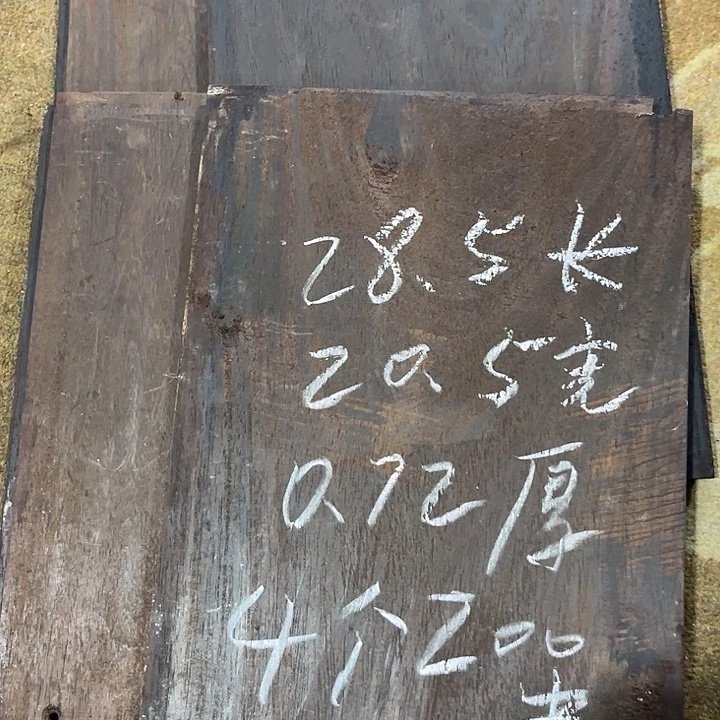 28.5长
20.5宽
0.72厚
4个200